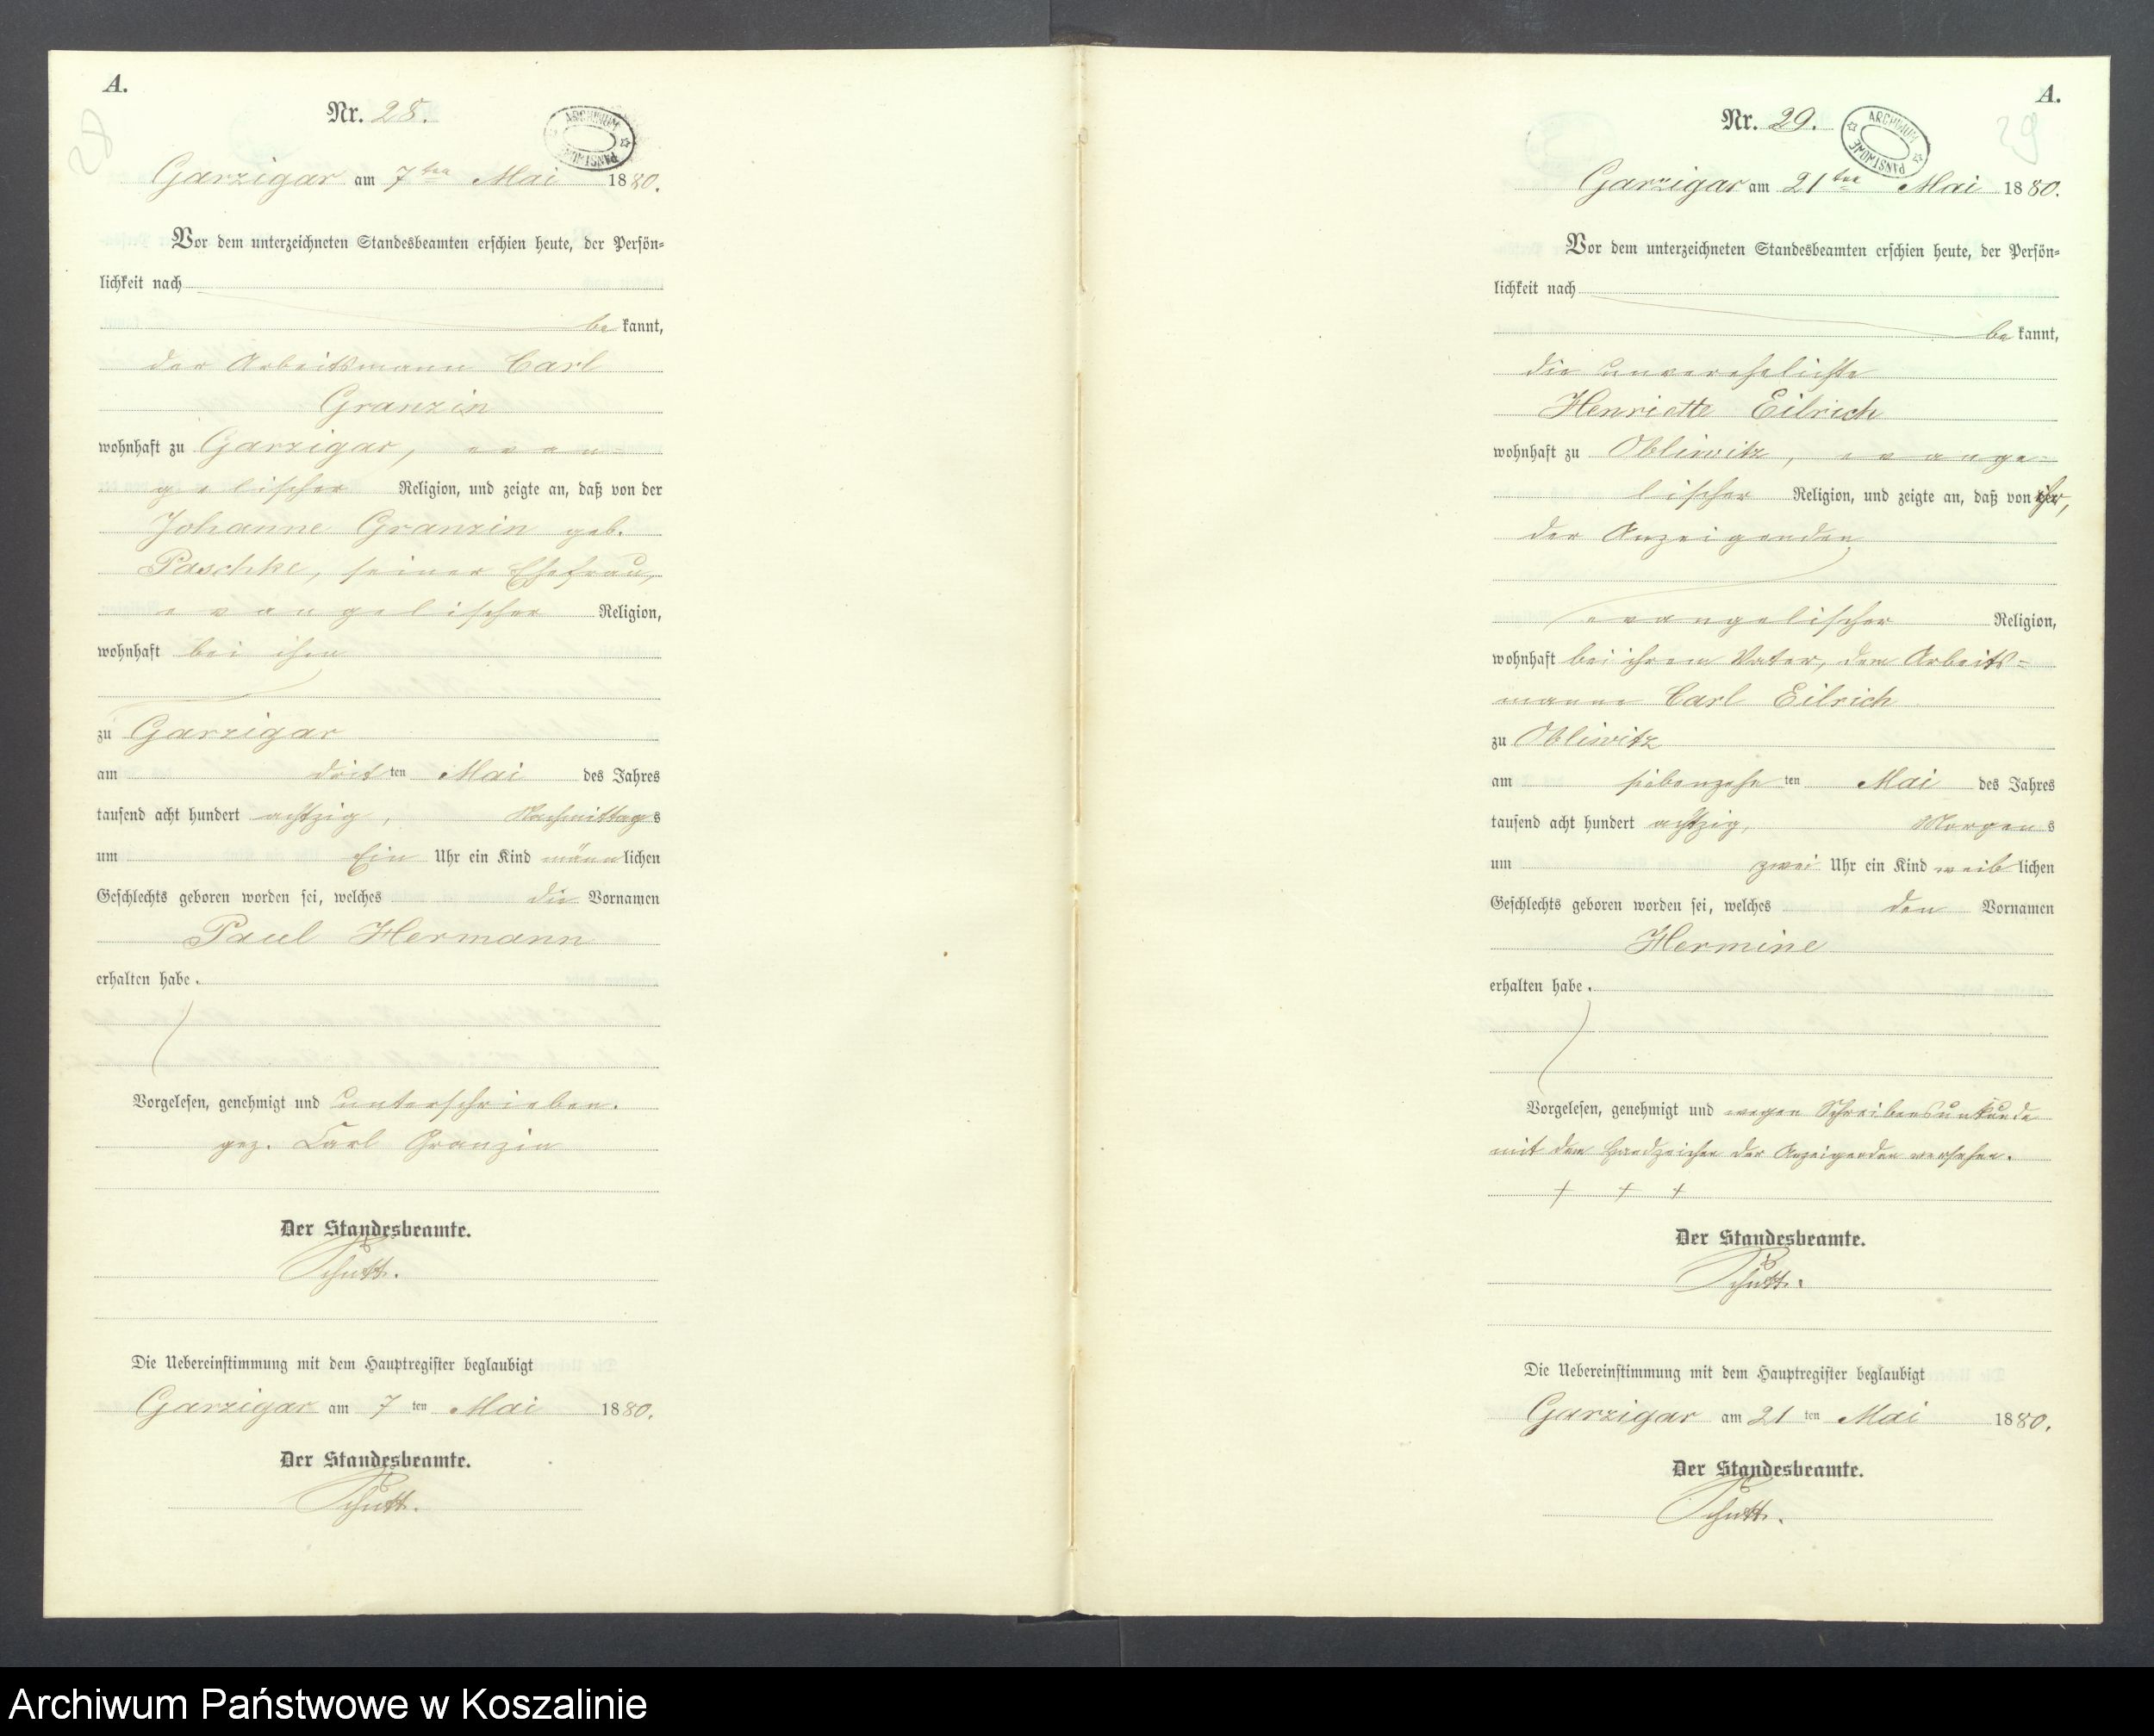 A.
28
Nr. 28.
ARCHIWUM PAŃSTWOWE
Garzigar am 7ten Mai 1880.
Vor dem unterzeichneten Standesbeamten erschien heute, der Persön=
lichkeit nach
be kannt,
der Arbeitsmann Carl
Granzin
wohnhaft zu Garzigar, evan=
gelischer Religion, und zeigte an, daß von der
Johanne Granzin geb.
Paschke, seiner Ehefrau,
evangelischer Religion,
wohnhaft bei ihm
zu Garzigar
am dritten Mai des Jahres
tausend acht hundert achtzig, Nachmittags
um Ein Uhr ein Kind männlichen
Geschlechts geboren worden sei, welches die Vornamen
Paul Hermann
erhalten habe.
Vorgelesen, genehmigt und unterschrieben.
gez. Carl Granzin
Der Standesbeamte.
Schutt.
Die Uebereinstimmung mit dem Hauptregister beglaubigt
Garzigar am 7ten Mai 1880.
Der Standesbeamte.
Schutt.
A.
29
Nr. 29.
ARCHIWUM PAŃSTWOWE
Garzigar am 21ten Mai 1880.
Vor dem unterzeichneten Standesbeamten erschien heute, der Persön=
lichkeit nach
be kannt,
die unverehelichte
Henriette Eilrich
wohnhaft zu Obliwitz, evange=
lischer Religion, und zeigte an, daß von ihr,
der Anzeigenden
evangelischer Religion,
wohnhaft bei ihrem Vater, dem Arbeits=
manne Carl Eilrich
zu Obliwitz
am siebenzehnten Mai des Jahres
tausend acht hundert achtzig, Morgens
um zwei Uhr ein Kind weiblichen
Geschlechts geboren worden sei, welches den Vornamen
Hermine
erhalten habe.
Vorgelesen, genehmigt und wegen Schreibensunkunde
mit dem Handzeichen der Anzeigenden versehen.
+ + +
Der Standesbeamte.
Schutt.
Die Uebereinstimmung mit dem Hauptregister beglaubigt
Garzigar am 21ten Mai 1880.
Der Standesbeamte.
Schutt.
Archiwum Państwowe w Koszalinie